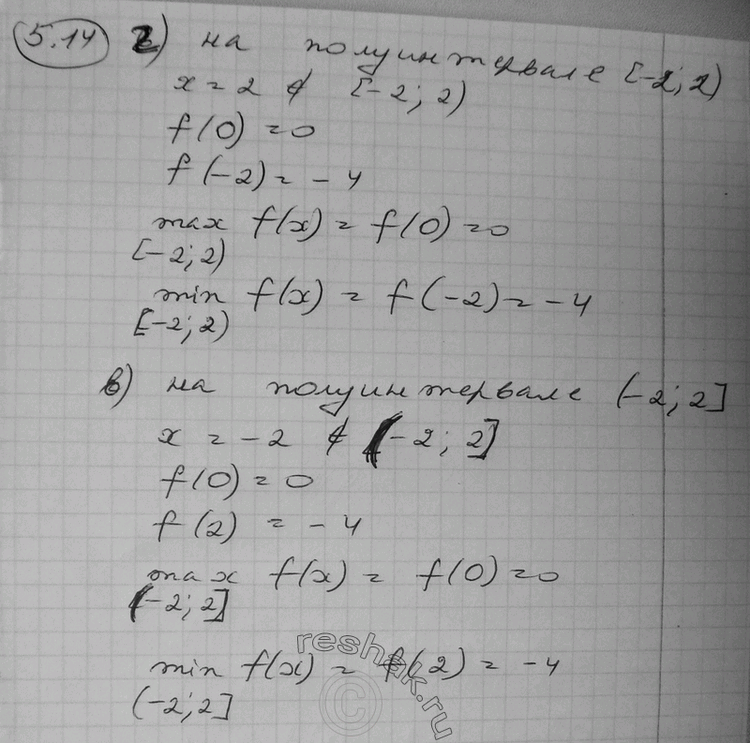 5.14 г) на полуинтервале [-2; 2)
x = 2 ∉ [-2; 2)
f(0) = 0
f(-2) = -4
max f(x) = f(0) = 0
[-2; 2)
min f(x) = f(-2) = -4
[-2; 2)
в) на полуинтервале (-2; 2]
x = -2 ∉ (-2; 2]
f(0) = 0
f(2) = -4
max f(x) = f(0) = 0
(-2; 2]
min f(x) = f(2) = -4
(-2; 2]
reshak.ru
©